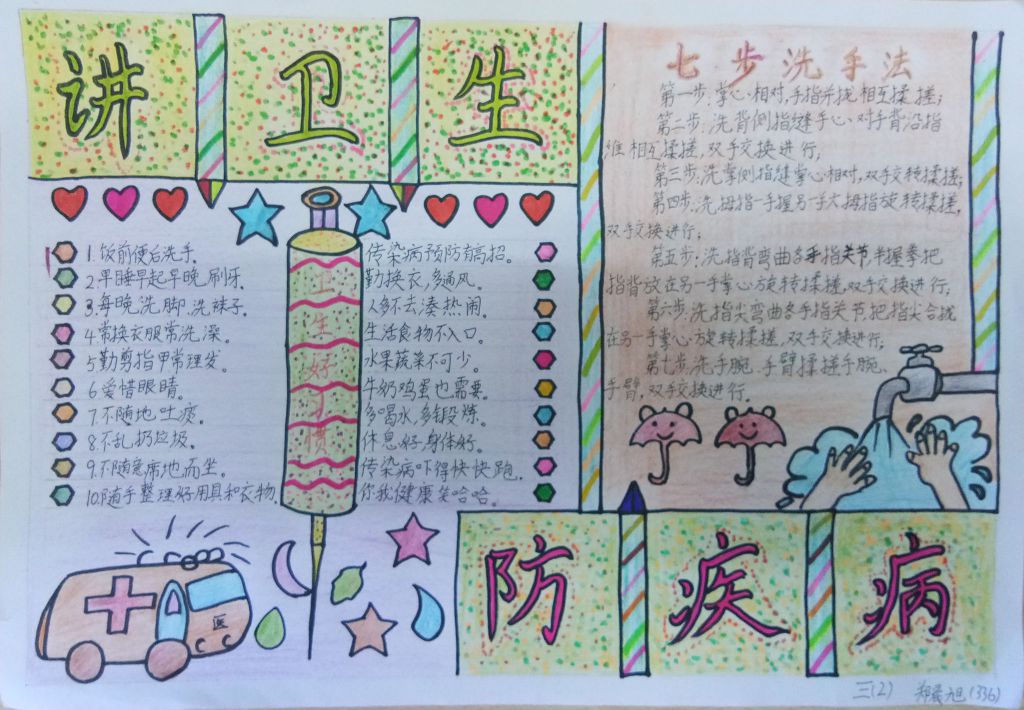 讲卫生
1.饭前便后洗手。
2.早睡早起早晚刷牙。
3.每晚洗脚、洗袜子。
4常换衣服常洗澡。
5勤剪指甲常理发。
6爱惜眼睛。
7.不随地吐痰。
8.不乱扔垃圾。
9.不随意席地而坐。
10.随手整理好用具和衣物.
卫
生
好
习
惯
传染病预防有高招。
勤换衣,多通风。
人多不去凑热闹。
生活食物不入口。
水果蔬菜不可少。
牛奶鸡蛋也需要。
多喝水,多锻炼。
休息好,身体好。
传染病吓得快快跑.
你我健康笑哈哈。
七步洗手法
第一步:掌心相对,手指并拢相互揉搓;
第二步:洗背侧指缝手心对手背沿指
缝相互揉搓,双手交换进行;
第三步:洗掌侧指缝掌心相对,双手交转揉搓;
第四步:洗拇指一手握另一手大拇指旋转揉搓,
双手交换进行;
第五步:洗指背弯曲各手指关节半握拳把
指背放在另一手掌心旋转揉搓,双手交换进行;
第六步:洗指尖弯曲各手指关节把指尖合拢
在另一手掌心旋转揉搓,双手交换进行;
第七步:洗手腕、手臂揉搓手腕、
手臂,双手交换进行。
医
防疾病
三(2) 郑 旭(336)